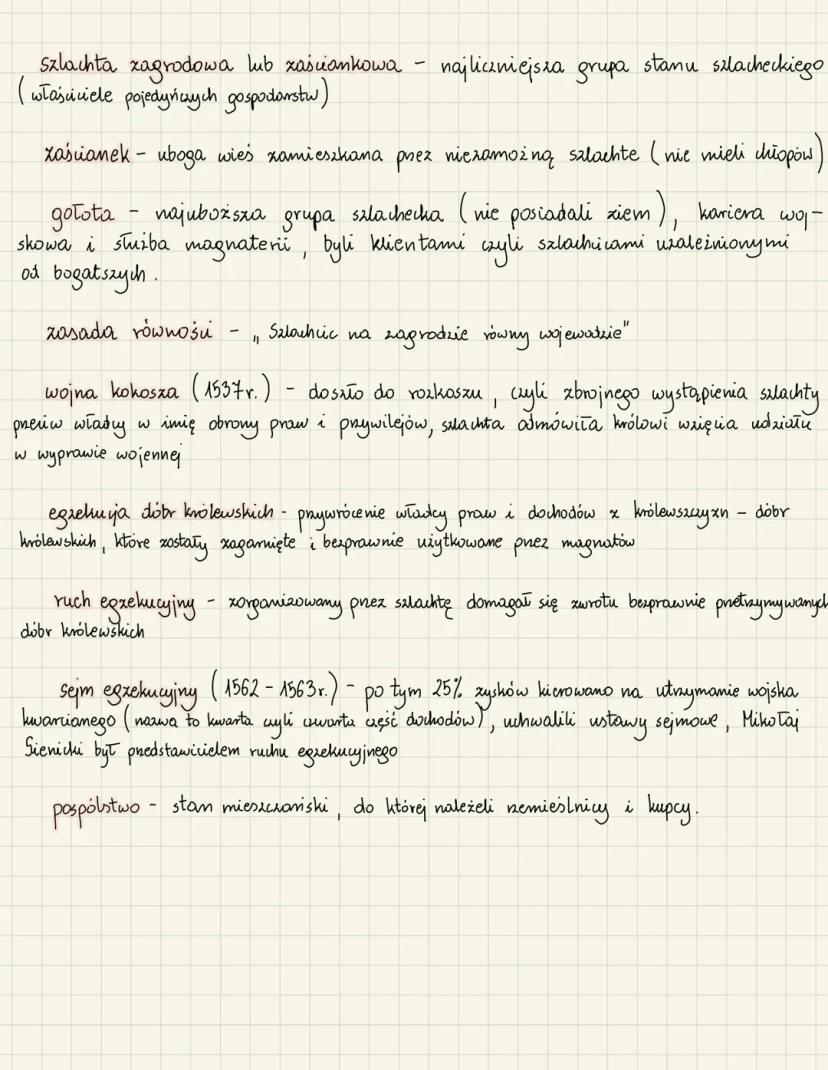 szlachta zagrodowa lub zaściankowa - najliczniejsza grupa stanu szlacheckiego
(właściciele pojedyńczych gospodarstw)
zaścianek - uboga wieś zamieszkana przez niezamożną szlachte (nie mieli chłopów)
gołota - najuboższa grupa szlachecka (nie posiadali ziem), kariera woj-
skowa i służba magnaterii, byli klientami czyli szlachcicami uzależnionymi
od bogatszych.
zasada równości - „Szlachcic na zagrodzie równy wojewodzie"
wojna kokosza (1537r.) - doszło do rozkoszu, czyli zbrojnego wystąpienia szlachty
przeciw władcy w imię obrony praw i przywilejów, szlachta odmówiła królowi wzięcia udziału
w wyprawie wojennej
egzekucja dóbr królewskich - przywrócenie władcy praw i dochodów z królewszczyzn - dóbr
królewskich, które zostały zagarnięte i bezprawnie użytkowane przez magnatów
ruch egzekucyjny - zorganizowany przez szlachtę domagał się zwrotu bezprawnie przetrzymywanych
dóbr królewskich
sejm egzekucyjny (1562 - 1563r.) - po tym 25% zysków kierowano na utrzymanie wojska
kwarcianego (nazwa to kwarta czyli czwarta część dochodów), uchwalili ustawy sejmowe, Mikołaj
Sienicki był przedstawicielem ruchu egzekucyjnego
pospólstwo - stan mieszczański, do której należeli rzemieślnicy i kupcy.